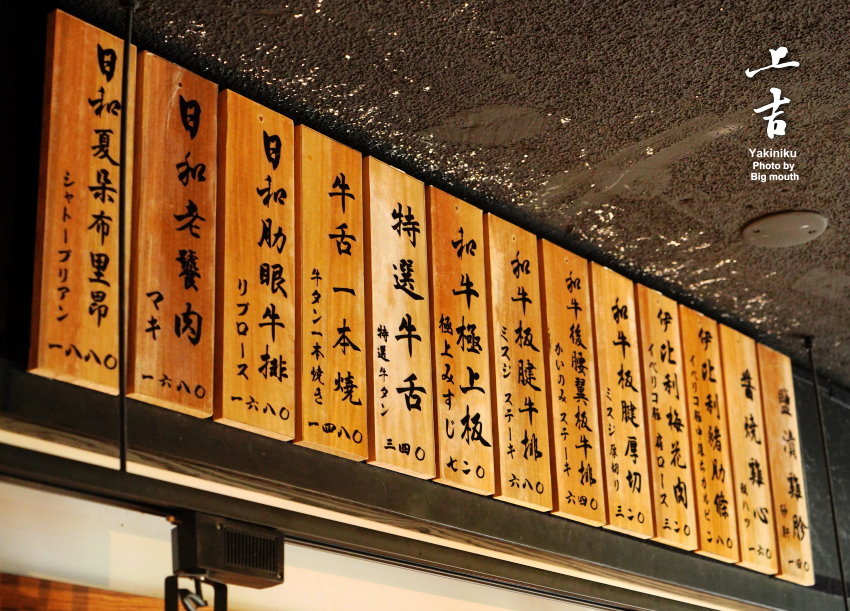 日和夏朵布里昂
シャトーブリアン
一八八〇
日和老饕肉
マキ
一六八〇
日和肋眼牛排
リブロース
一六八〇
牛舌一本燒
牛タン一本焼き
一四八〇
特選牛舌
特選牛タン
三四〇
和牛極上板
極上みすじ
七二〇
和牛板腱牛排
ミスジ ステーキ
六八〇
和牛後腰翼板牛排
かいのみ ステーキ
六四〇
和牛板腱厚切
ミスジ 厚切り
三二〇
伊比利梅花肉
イベリコ豚 肩ロース
三二〇
伊比利豬肋條
イベリコ豚
カルビ
醬燒雞心
鹽漬雞胗
砂肝
一四〇
上吉
Yakiniku
Photo by
Big mouth